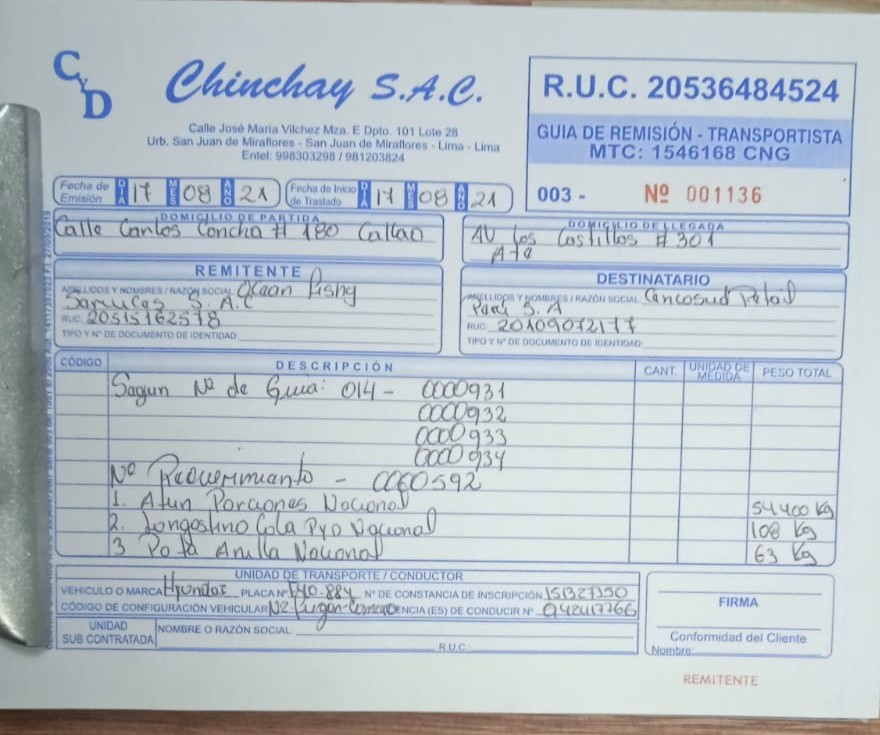 CyD
Chinchay S.A.C.
Calle José María Vilchez Mza. E Dpto. 101 Lote 28
Urb. San Juan de Miraflores - San Juan de Miraflores - Lima - Lima
Entel: 998303298 / 981203824
R.U.C. 20536484524
GUIA DE REMISIÓN - TRANSPORTISTA
MTC: 1546168 CNG
003 - Nº 001136
Fecha de Emisión DIA 17 MES 08 AÑO 21 Fecha de Inicio de Traslado DIA 17 MES 08 AÑO 21
DOMICILIO DE PARTIDA
Calle Carlos Concha # 180 Callao
DOMICILIO DE LLEGADA
AV Los Castillos # 301
Ate
REMITENTE
APELLIDOS Y NOMBRES / RAZÓN SOCIAL Ocean Fishg
Saruces S.A.C
RUC: 20515162578
TIPO Y Nº DE DOCUMENTO DE IDENTIDAD
DESTINATARIO
APELLIDOS Y NOMBRES / RAZÓN SOCIAL Cencosud Retail
Perú S.A
RUC 20109072177
TIPO Y Nº DE DOCUMENTO DE IDENTIDAD
CÓDIGO DESCRIPCIÓN CANT. UNIDAD DE MEDIDA PESO TOTAL
Segun Nº de Guia: 014 - 0000931
0000932
0000933
0000934
Nº Requerimiento - 0060592
1. Atun Porciones Nacional 54400 Kg
2. Langostino Cola PyD Nacional 108 Kg
3 Pota Anilla Nacional 63 Kg
UNIDAD DE TRANSPORTE / CONDUCTOR
VEHICULO O MARCA Hyundai PLACA Nº 884 Nº DE CONSTANCIA DE INSCRIPCIÓN 151327350
CÓDIGO DE CONFIGURACIÓN VEHICULAR N2-Furgon LICENCIA (ES) DE CONDUCIR Nº Q42417766
UNIDAD SUB CONTRATADA NOMBRE O RAZÓN SOCIAL
R.U.C.
FIRMA
Conformidad del Cliente
Nombre:
REMITENTE